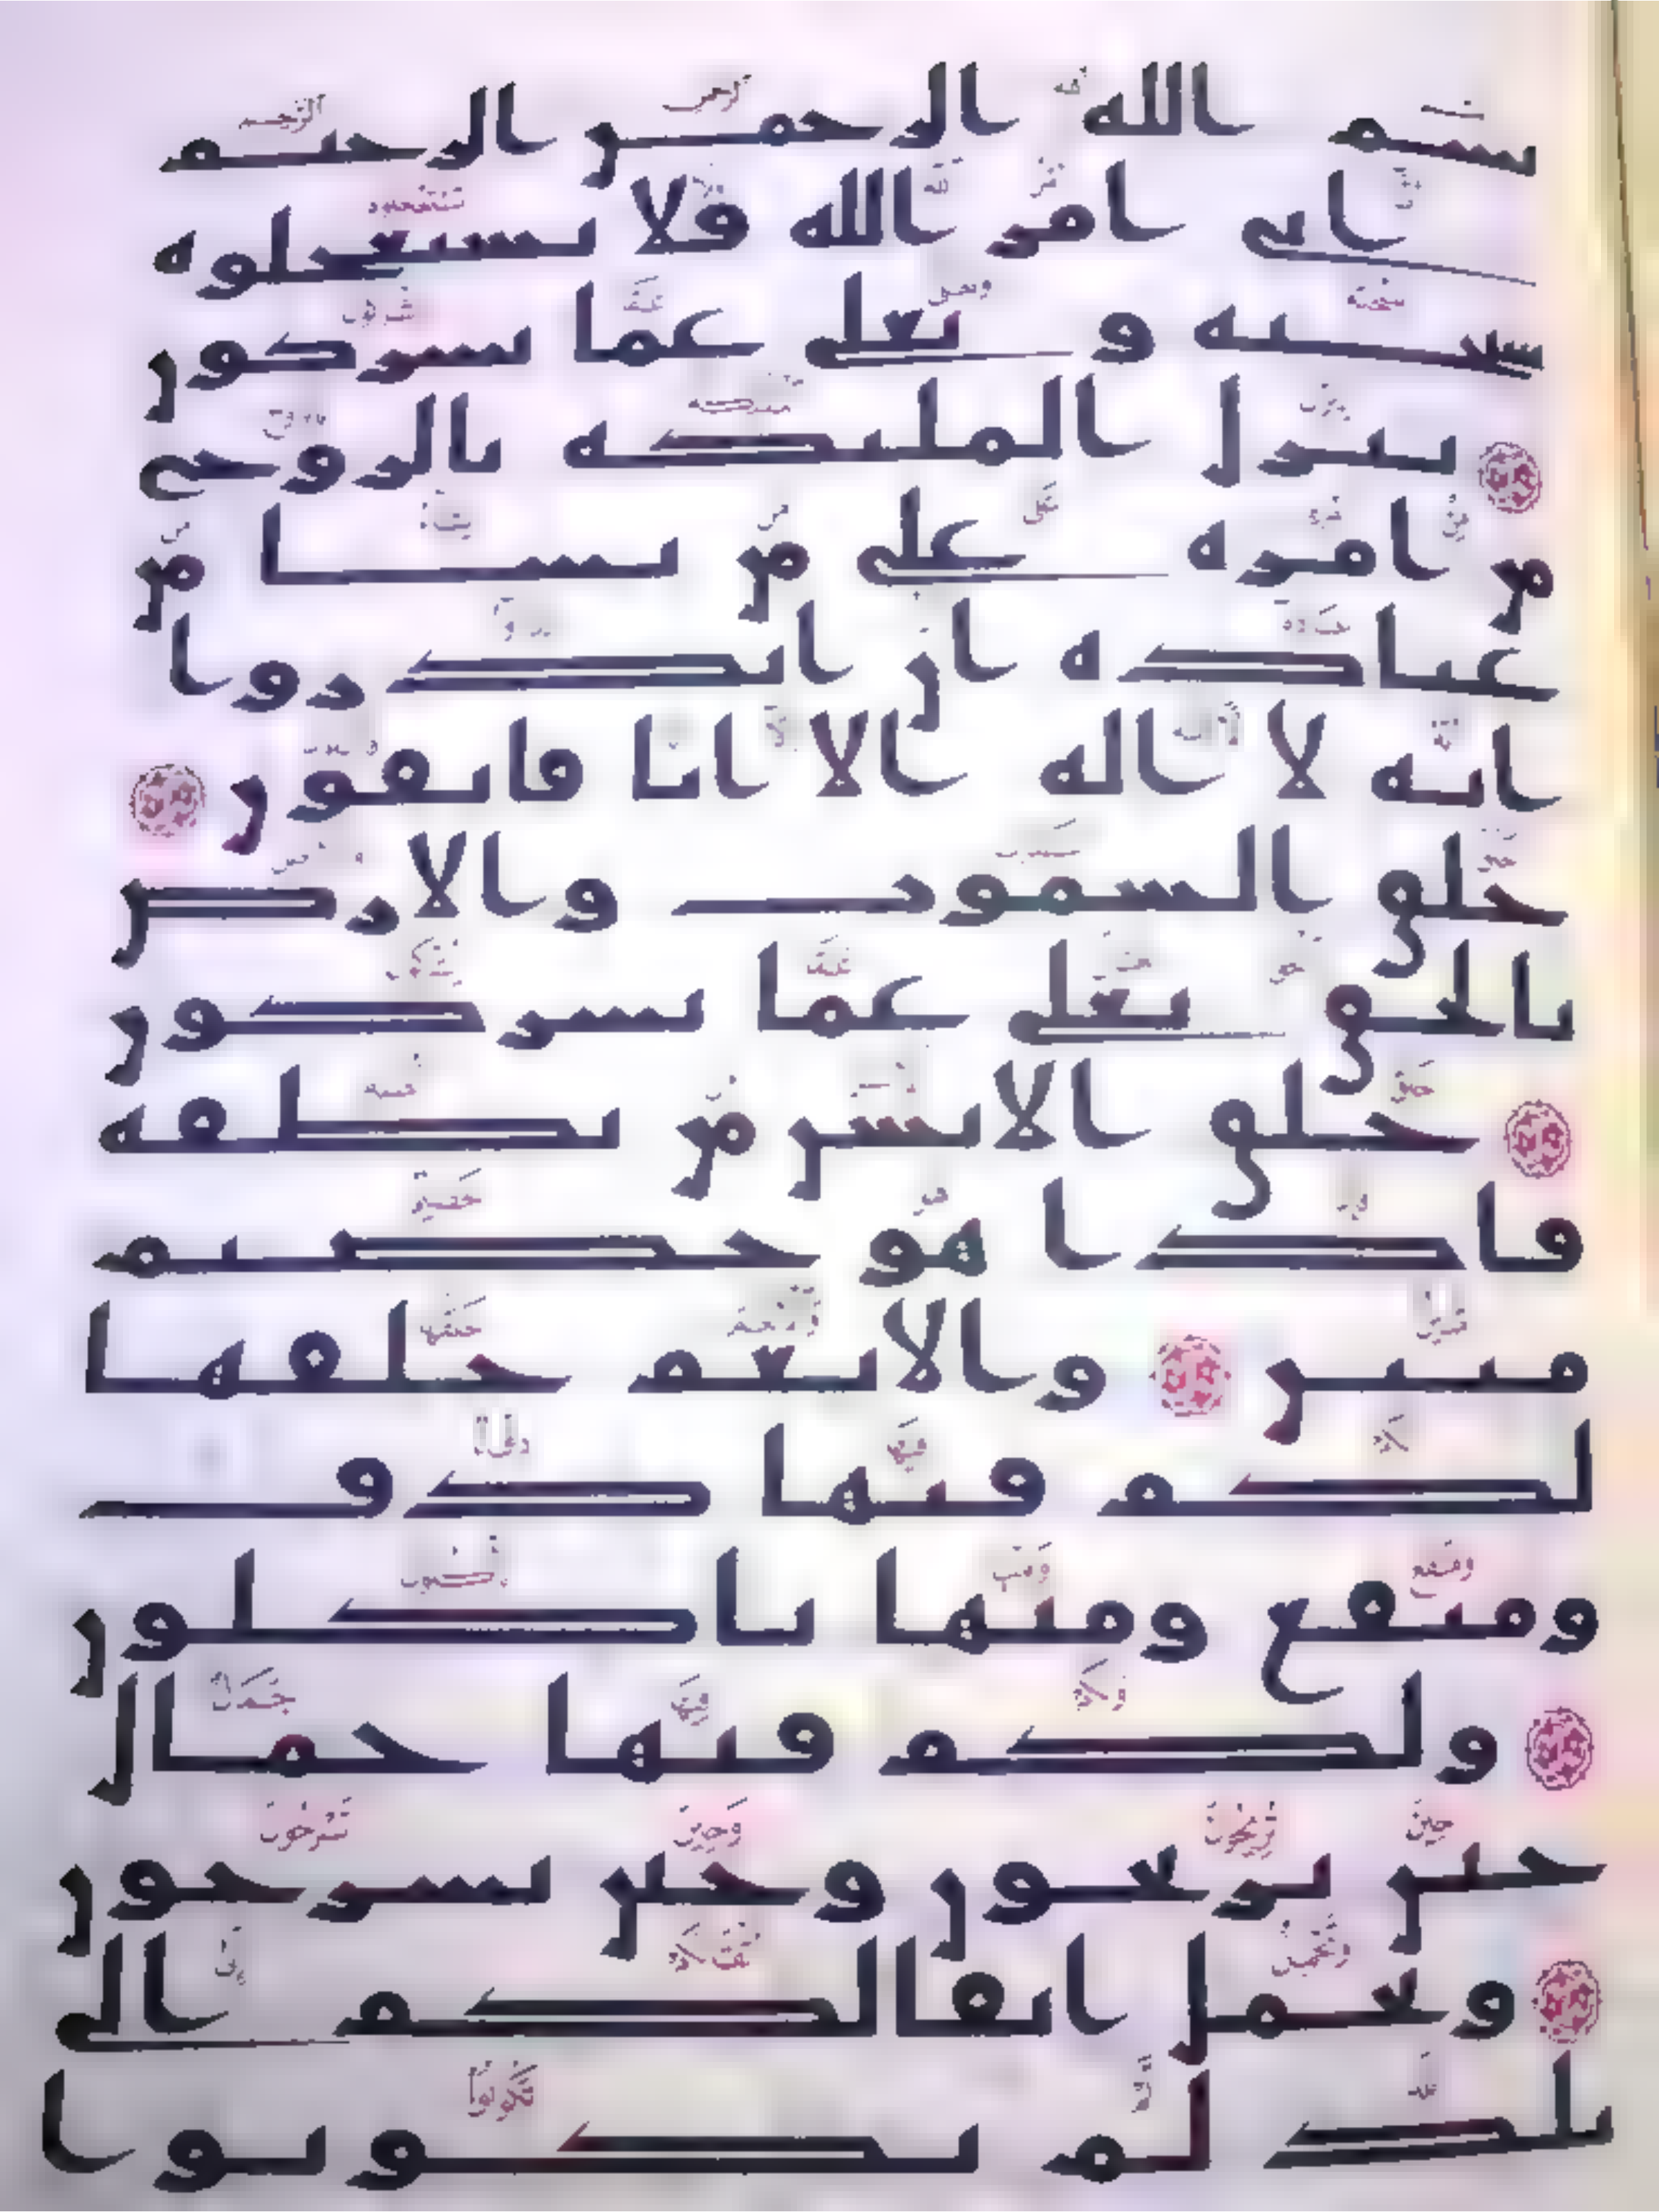 بسم الله الرحمن الرحيم
اتى امر الله فلا تستعجلوه
سبحنه و تعلى عما يشركون
ينزل الملئكه بالروح
من امره على من يشا من
عباده ان انذروا
انه لا اله الا انا فاتقون
خلق السموت والارض
بالحق تعلى عما يشركون
خلق الانسن من نطفه
فاذا هو خصيم
مبين والانعم خلقها
لكم فيها دف
ومنفع ومنها تاكلون
ولكم فيها جمال
حين تريحون وحين تسرحون
وتحمل اثقالكم الى
بلد لم تكونوا